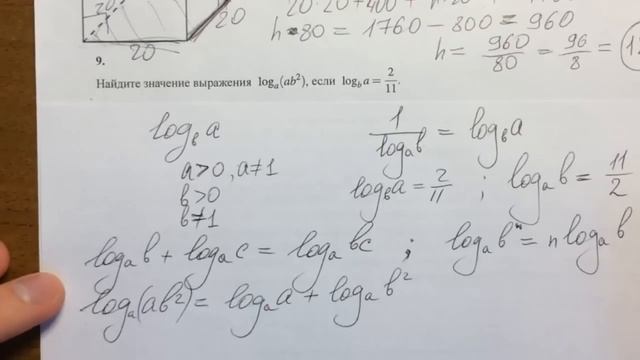 20
20
20
20·20+400+
h·80 = 1760 - 800 = 960
h = 960/80 = 96/8 =
9.
Найдите значение выражения logₐ(ab²), если log_b a = 2/11.
log_b a
a>0, a≠1
b>0
b≠1
1/logₐb = log_b a
log_b a = 2/11 ; logₐb = 11/2
logₐb + logₐc = logₐbc ; logₐbⁿ = n logₐb
logₐ(ab²) = logₐa + logₐb²